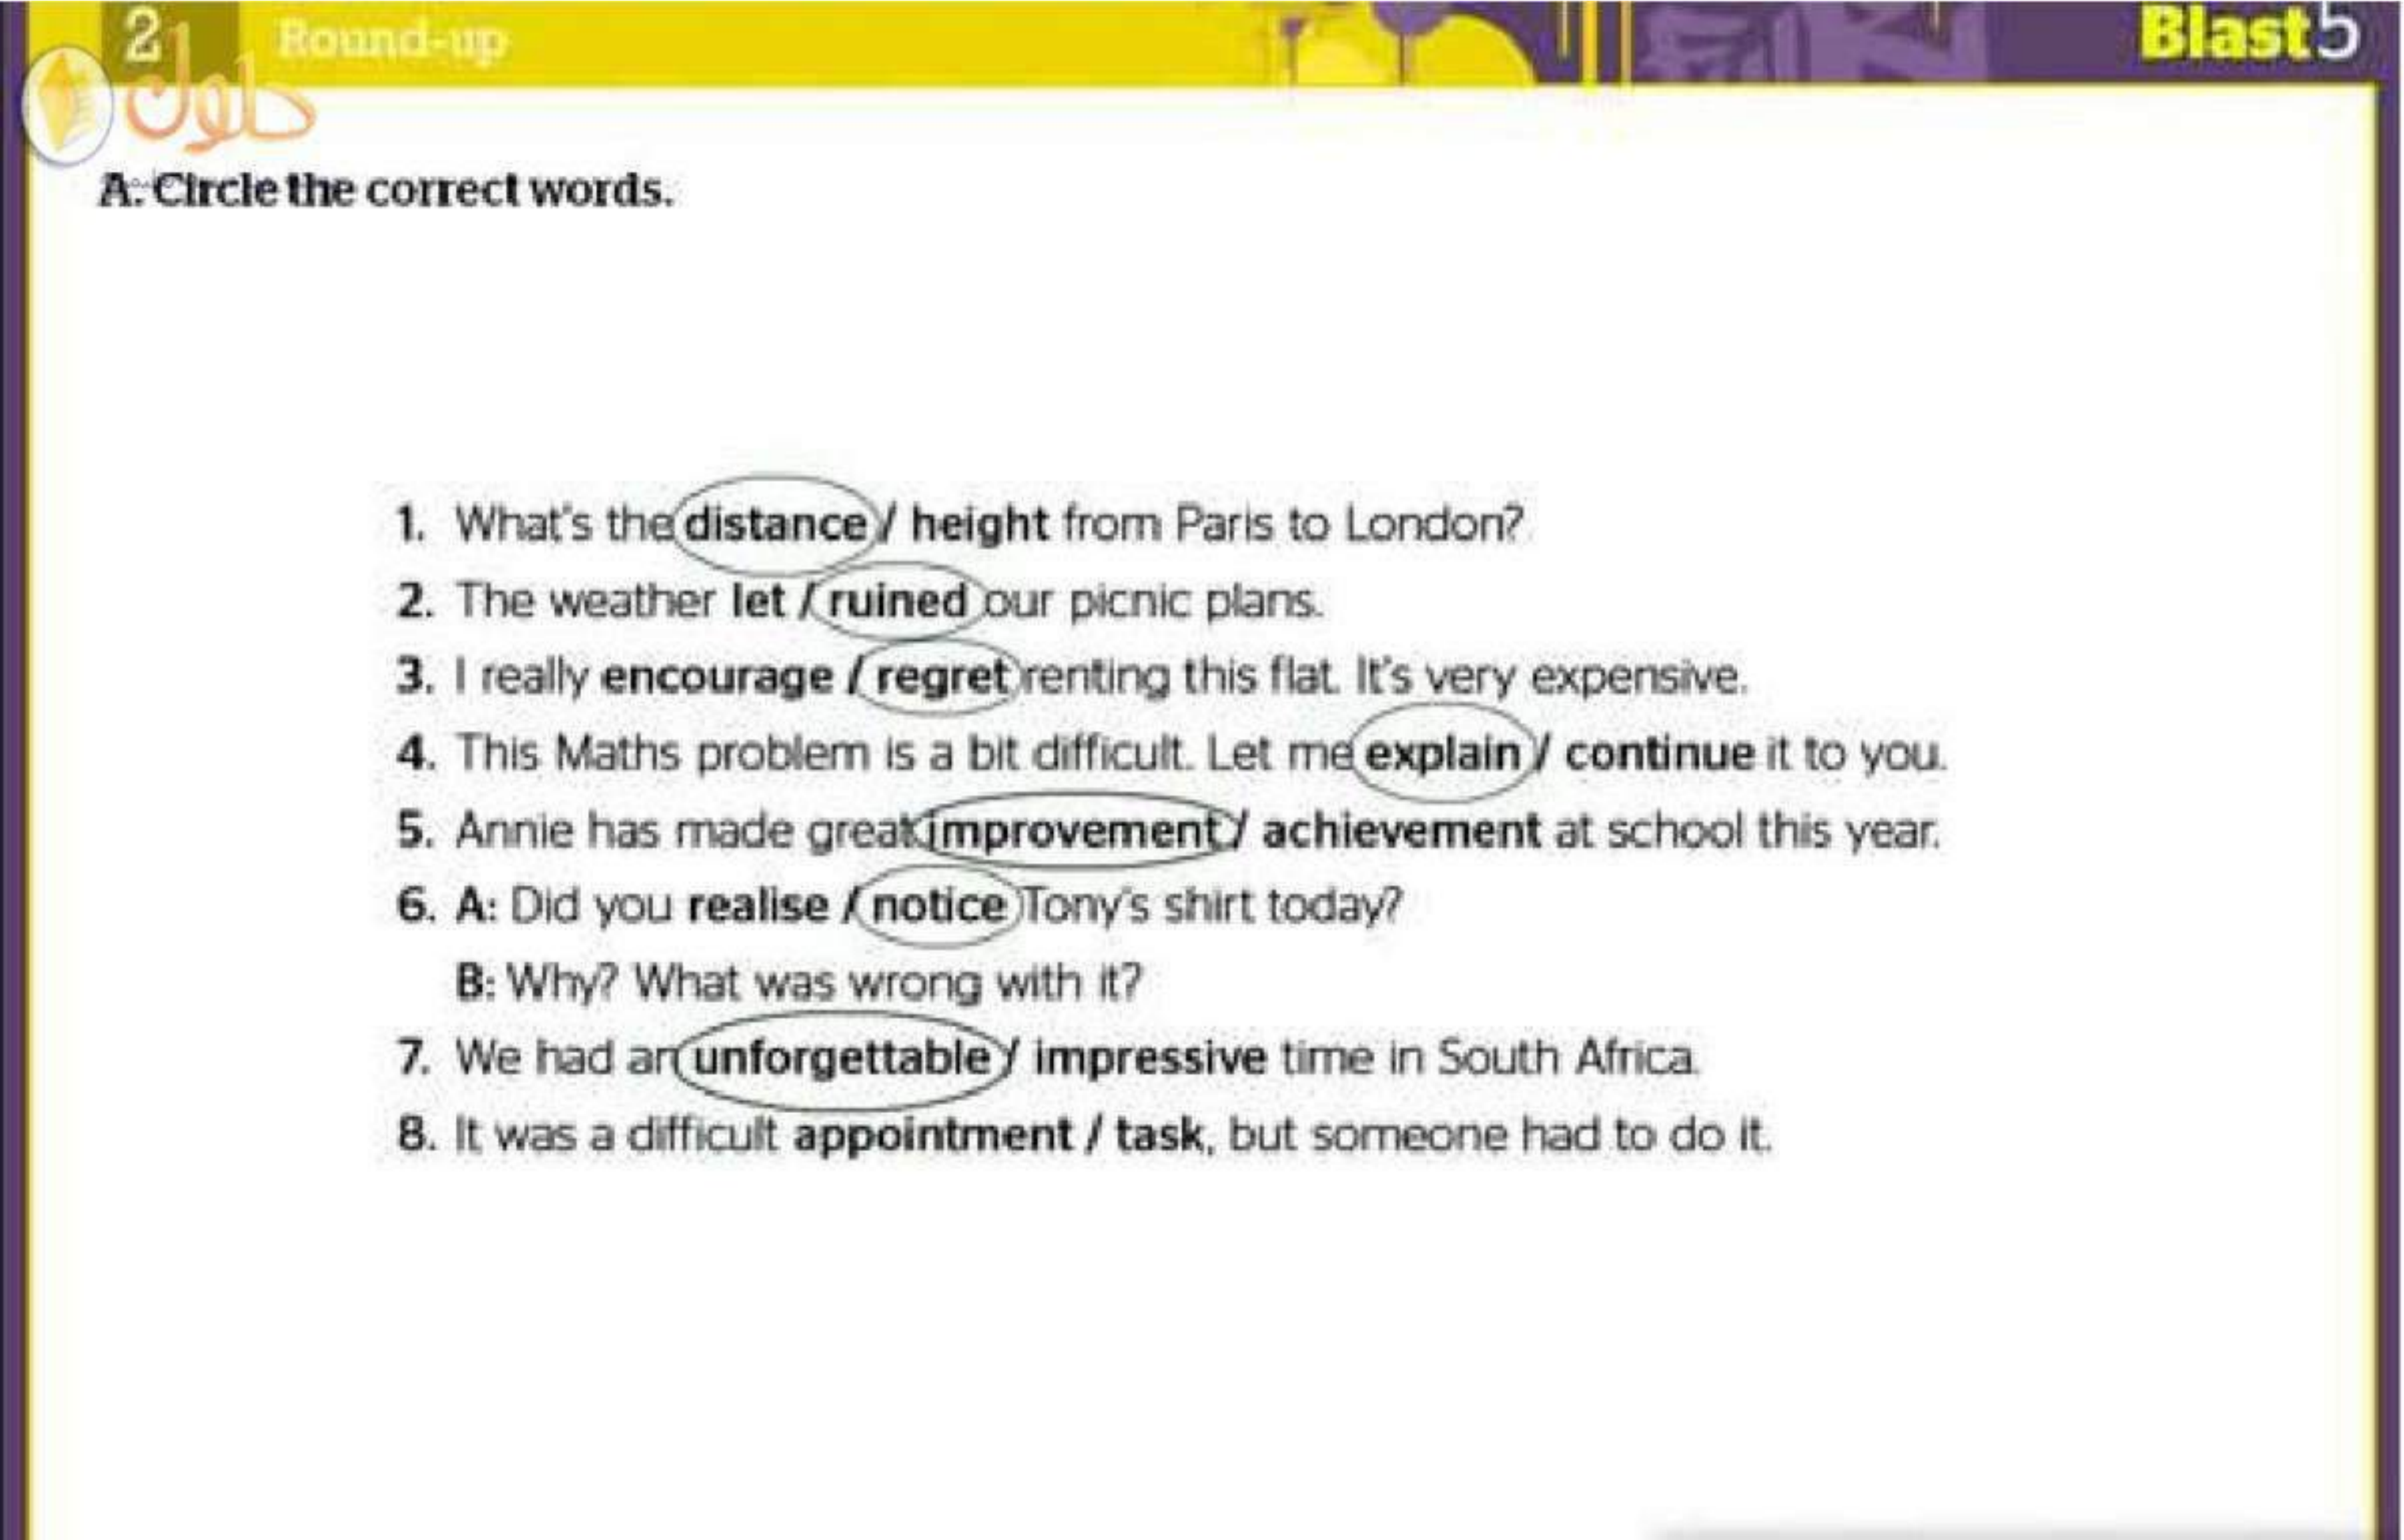 2 Round-up
Blast 5
حلول
A: Circle the correct words.
1. What's the distance / height from Paris to London?
2. The weather let / ruined our picnic plans.
3. I really encourage / regret renting this flat. It's very expensive.
4. This Maths problem is a bit difficult. Let me explain / continue it to you.
5. Annie has made great improvement / achievement at school this year.
6. A: Did you realise / notice Tony's shirt today?
B: Why? What was wrong with it?
7. We had an unforgettable / impressive time in South Africa.
8. It was a difficult appointment / task, but someone had to do it.